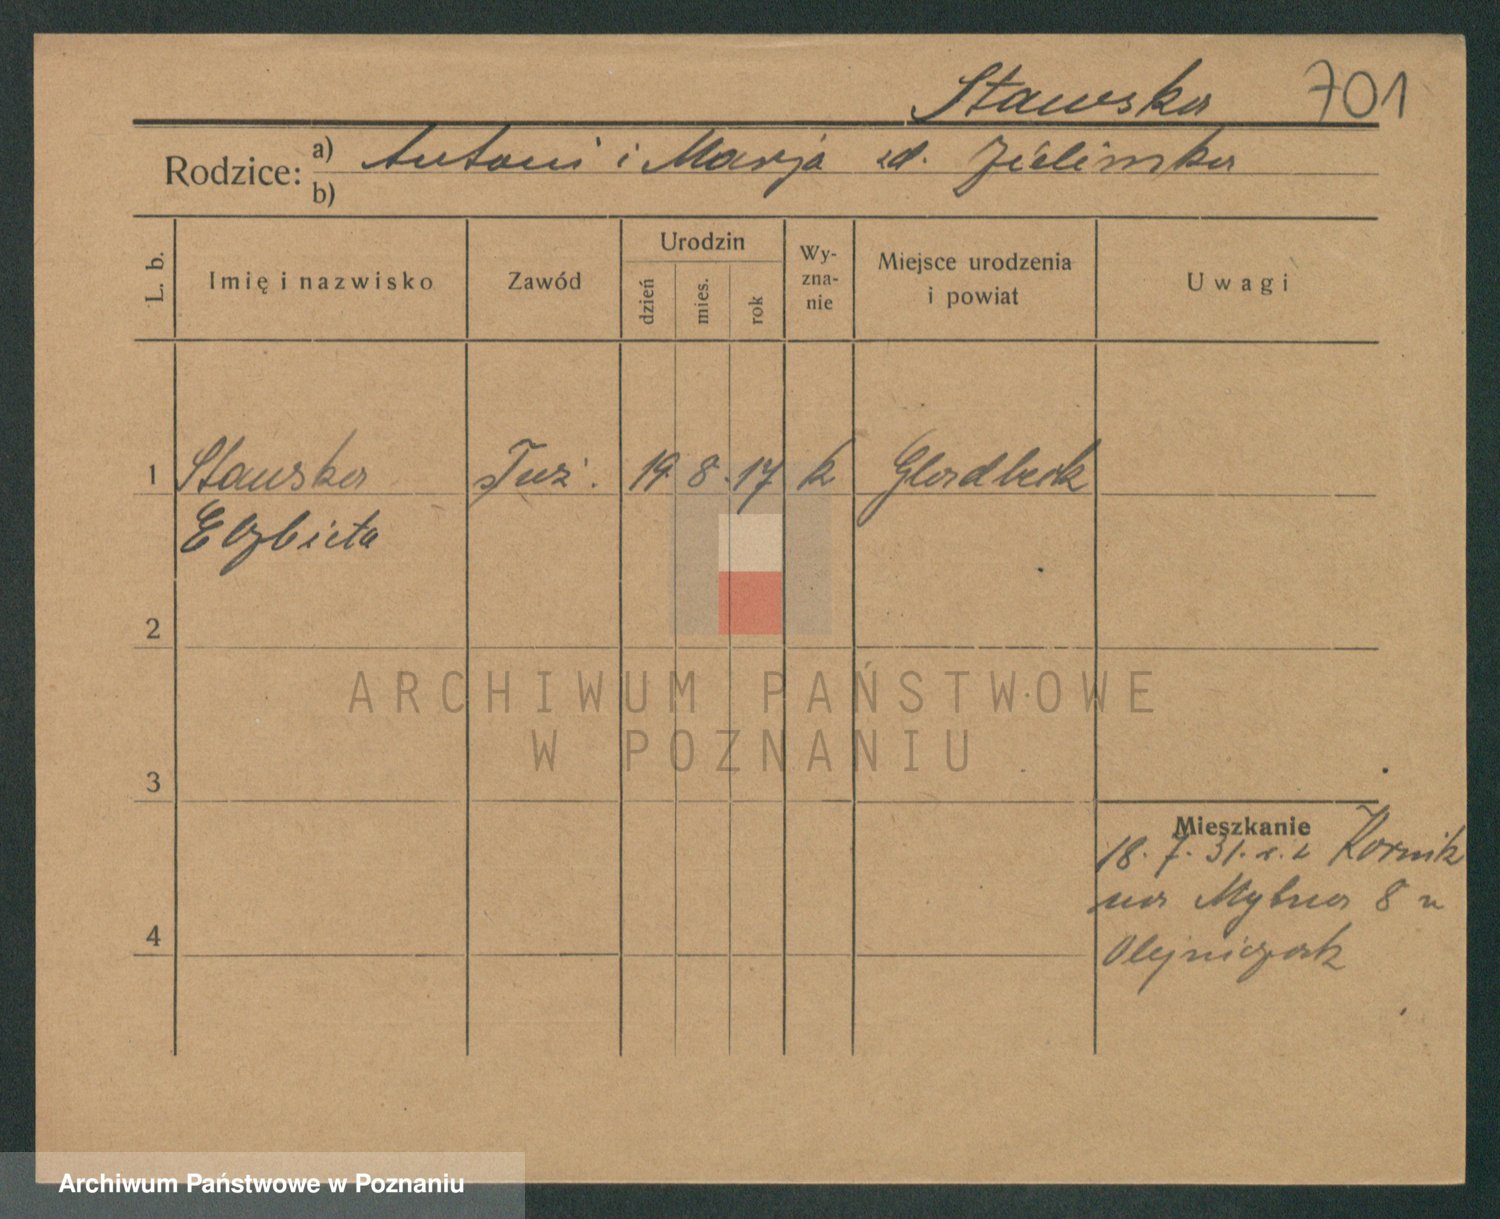 Stawska 701
Rodzice: a) Antoni i Marja zd. Zielińska
b)
L. b.
Imię i nazwisko
Zawód
Urodzin
dzień
mies.
rok
Wy-
zna-
nie
Miejsce urodzenia
i powiat
Uwagi
1 Stawska służ. 19. 8. 17 k Gladbeck
Elżbieta
2
3
4
Mieszkanie
18. 7. 31. Kórnik
na Młyńska 8 u
Olejniczak
ARCHIWUM PAŃSTWOWE
W POZNANIU
Archiwum Państwowe w Poznaniu